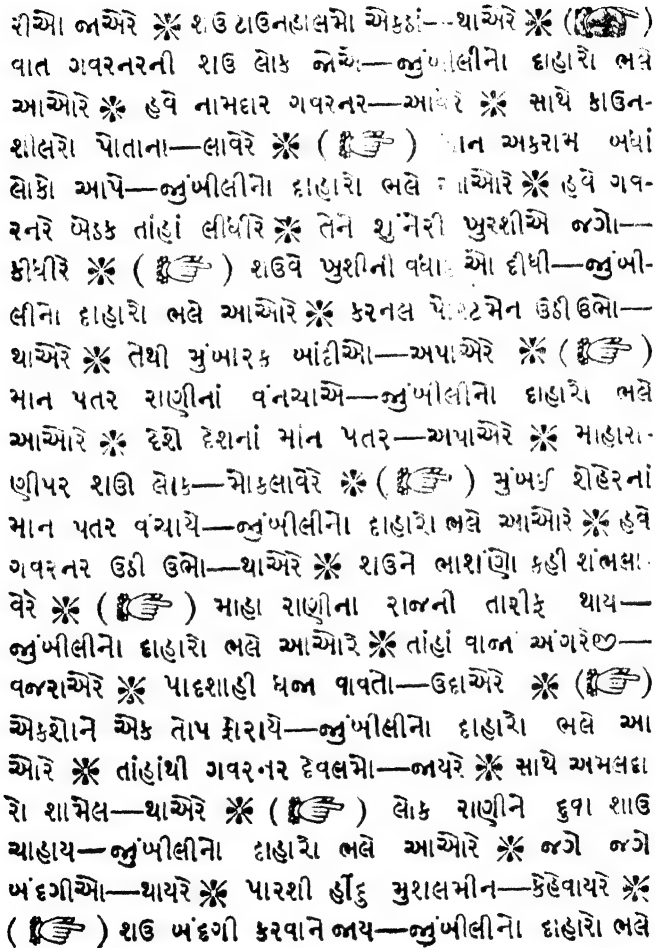 રીઓ જાએરે ❋ શઉ ટાઉનહાલમાે એકઠાં—થાએરે ❋ (☞)
વાત ગવરનરની શઉ લાેક જાેએ—જાુંબીલીનાે દાહારાે ભલે
આઓરે ❋ હવે નામદાર ગવરનર—આવેરે ❋ સાથે કાઉન-
શીલરાે પાેતાના—લાવેરે ❋ (☞) માન અકરામ બધાં
લાેકાે આપે—જાુંબીલીનાે દાહારાે ભલે આઓરે ❋ હવે ગવ-
રનરે બેઠક તાંહાં લીધીરે ❋ તેને શુંનેરી ખુરશીએ જગાે—
કીધીરે ❋ (☞) શઉવે ખુશીની વધાઈઓ દીધી—જાુંબી-
લીનાે દાહારાે ભલે આઓરે ❋ કરનલ પાેરટમેન ઉઠી ઉભાે—
થાએરે ❋ તેથી મુંબારક બાંદીઓ—અપાએરે ❋ (☞)
માન પતર રાણીનાં વંનચાએ—જાુંબીલીનાે દાહારાે ભલે
આઓરે ❋ દેશે દેશનાં માંન પતર—અપાએરે ❋ માહારા-
ણીપર શઊ લાેક—માેકલાવેરે ❋ (☞) મુંબઈ શેહેરનાં
માન પતર વંચાયે—જાુંબીલીનાે દાહારાે ભલે આઓરે ❋ હવે
ગવરનર ઉઠી ઉભાે—થાએરે ❋ શઉને ભાશંણાે કહી શંભલા-
વેરે ❋ (☞) માહા રાણીના રાજની તારીફ થાય—
જાુંબીલીનાે દાહારાે ભલે આઓરે ❋ તાંહાં વાજાં અંગરેજી—
વજરાએરે ❋ પાદશાહી ધજા વાવતાે—ઉદાએરે ❋ (☞)
એકશાેને એક તાેપ ફાેરાયે—જાુંબીલીનાે દાહારાે ભલે આ
ઓરે ❋ તાંહાંથી ગવરનર દેવલમાે—જાયરે ❋ સાથે અમલદા
રાે શામેલ—થાએરે ❋ (☞) લાેક રાણીને દુવા શાઉ
ચાહાય—જાુંબીલીનાે દાહારાે ભલે આઓરે ❋ જગે જગે
બંદગીઓ—થાયરે ❋ પારશી હીંદુ મુશલમીન—કેહેવાયરે ❋
(☞) શઉ બંદગી કરવાને જાય—જાુંબીલીનાે દાહારાે ભલે